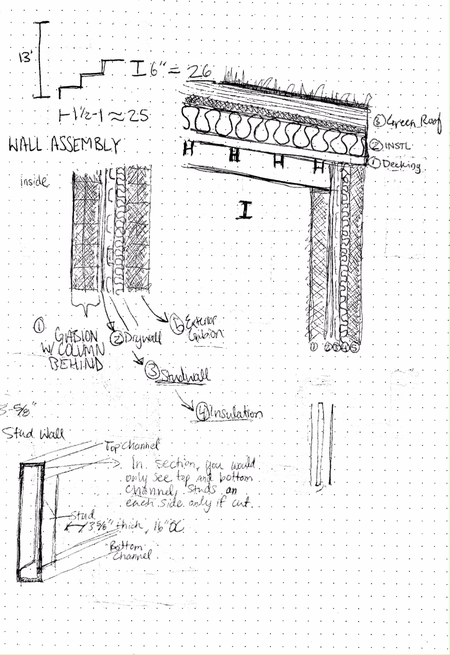 13'
I 6" = 26
⊢ 1½-1 ≈ 25
WALL ASSEMBLY
inside
③ Green Roof
② INSTL
① Decking
I
① GABION
W/ COLUMN
BEHIND
② Drywall
③ Studwall
④ Insulation
Exterior
Gabion
3-5/8"
Stud Wall
Top channel
In section, you would
only see top and bottom
channel, studs on
each side only if cut.
Stud
3 5/8" thick, 16" OC
Bottom
Channel